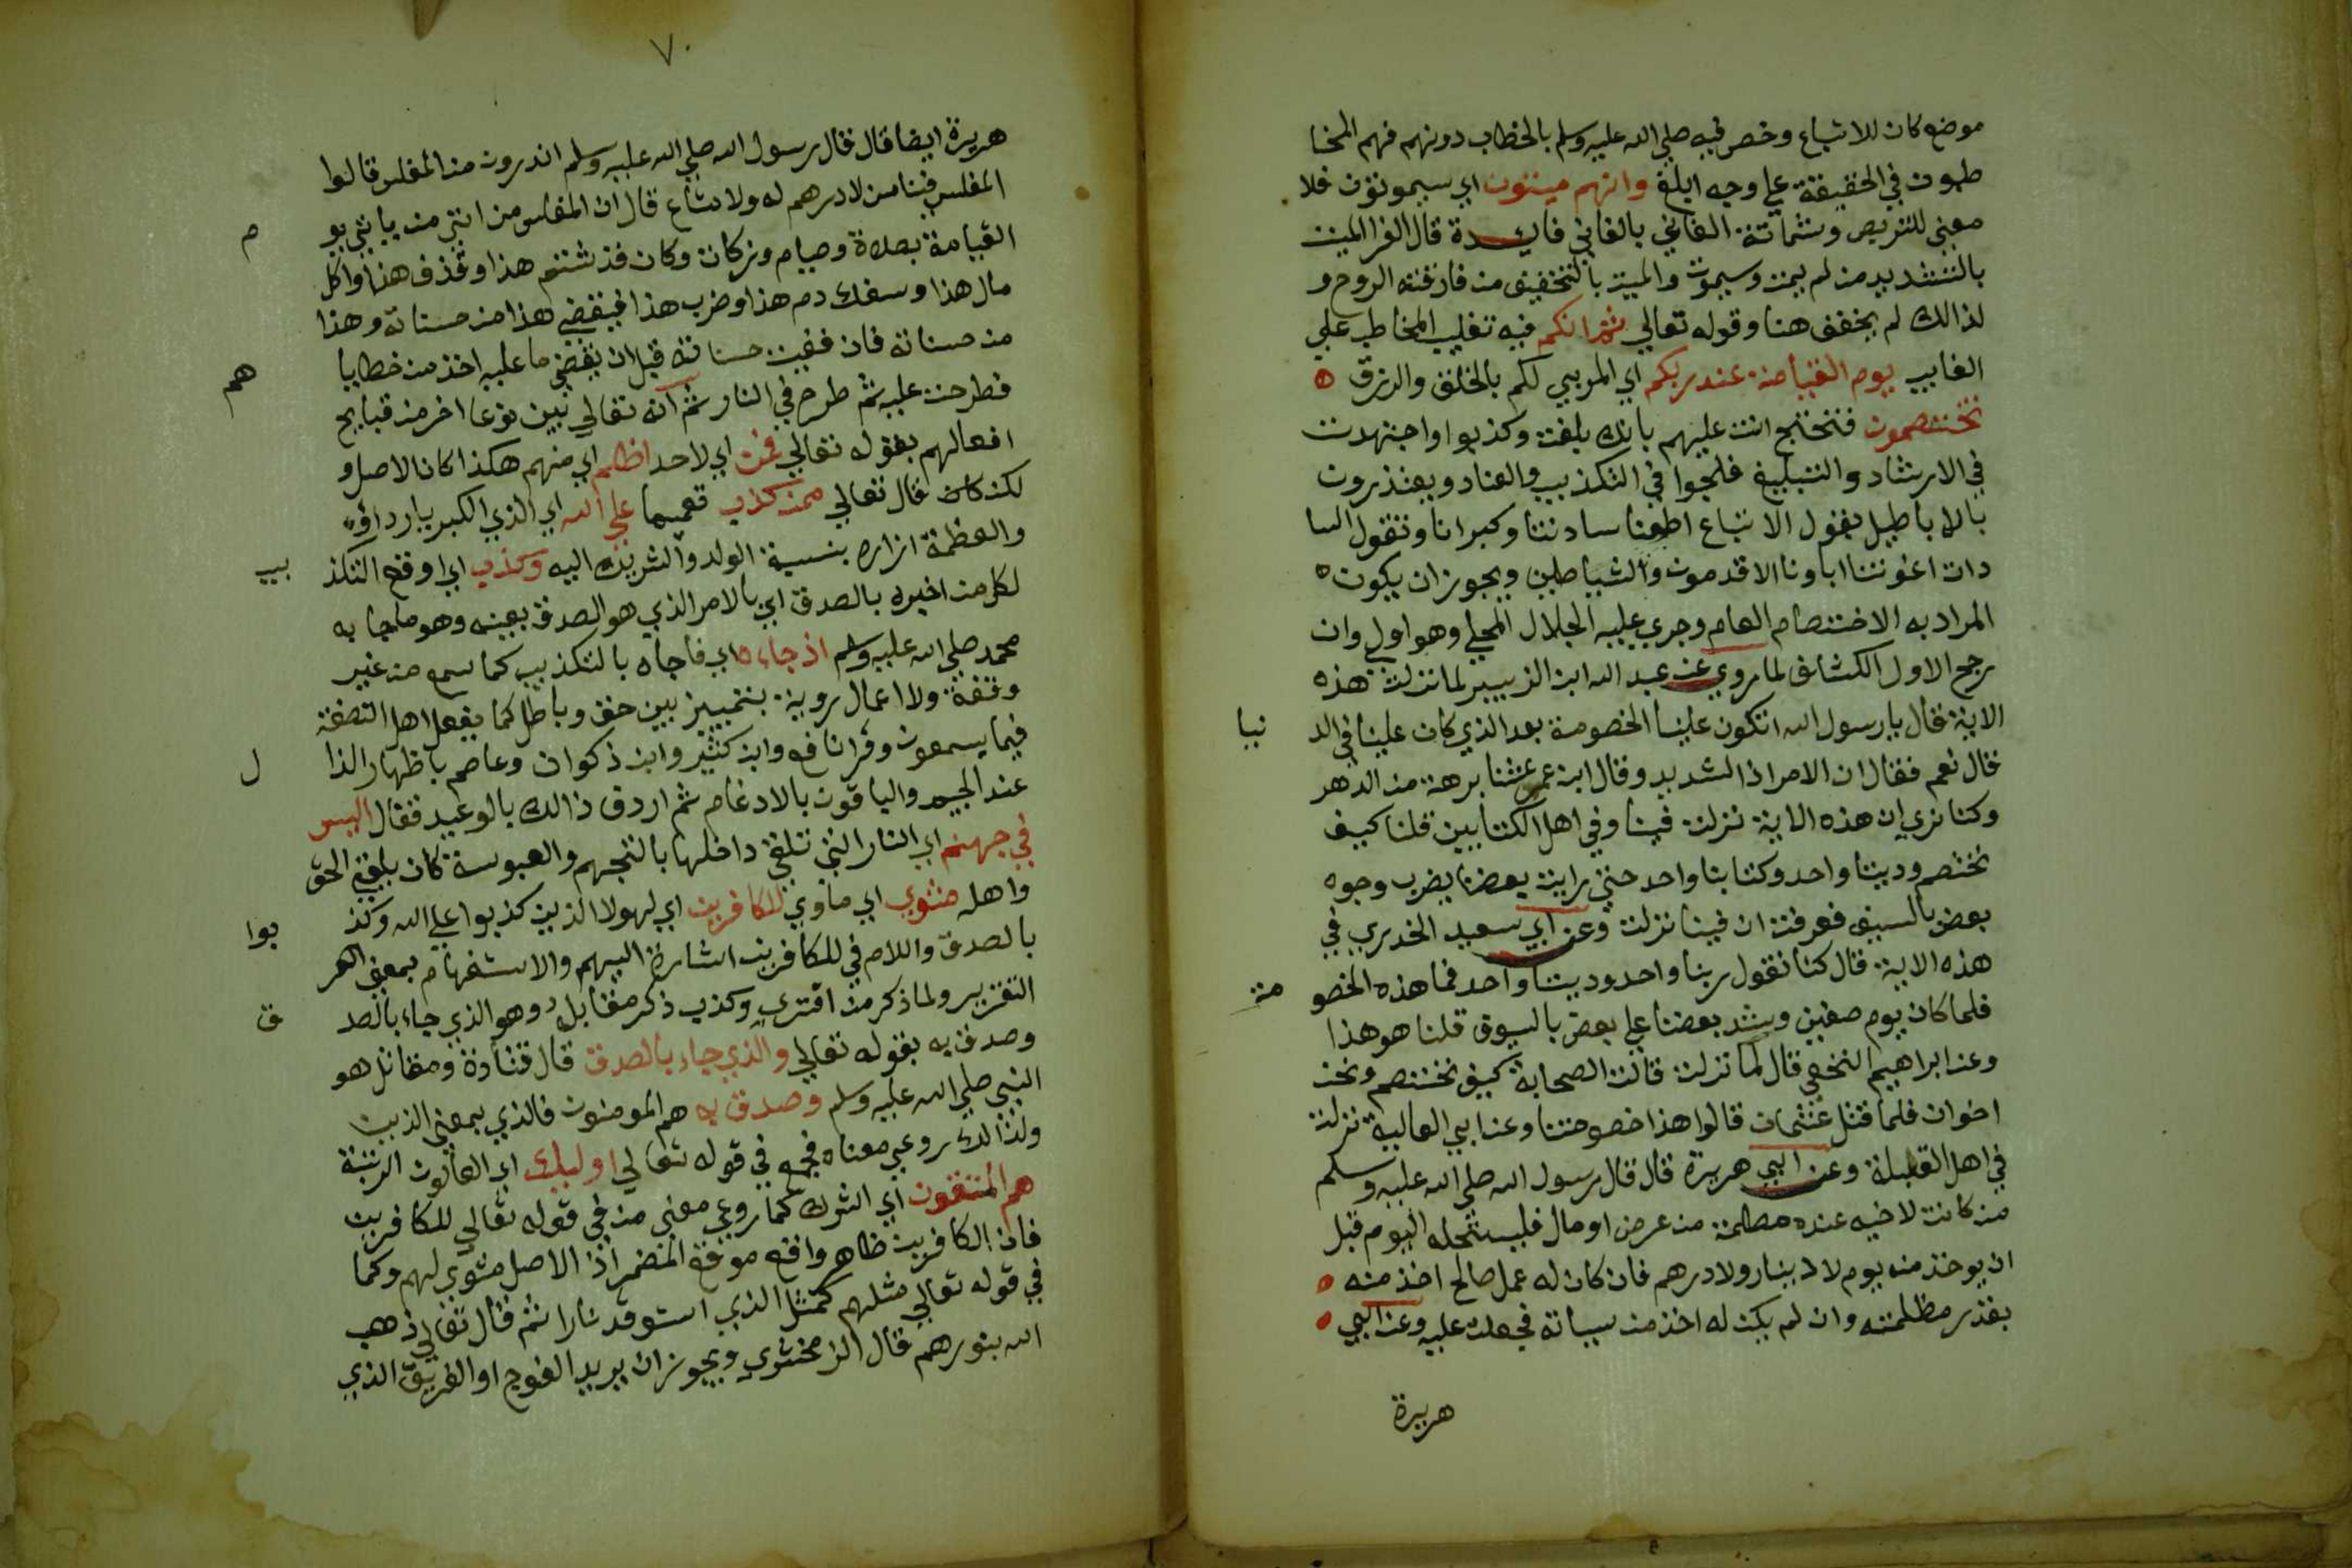 موضع كان للاتباع وخص فيه صلي الله عليه وسلم بالخطاب دونهم فهم المخا
طبون في الحقيقة علي وجه ابلغ وانهم ميتون اي سيموتون فلا
معني للتربص وشماتة الفاني بالفاني فايدة قال الفرا الميت
بالتشديد من لم يمت وسيموت والميت بالتخفيف من فارقته الروح و
لذالك لم يخفف هنا وقوله تعالي ثم انكم فيه تغليب المخاطب علي
الغايب يوم القيامة عند ربكم اي المربي لكم بالخلق والرزق ه
تختصمون فتحتج انت عليهم بانك بلغت وكذبوا واجتهدت
في الارشاد والتبليغ فلجوا في التكذيب والعناد ويعتذرون
بالاباطيل يقول الاتباع اطعنا سادتنا وكبرانا وتقول السا
دات اغوتنا اباونا الاقدمون والشياطين ويجوز ان يكون ه
المراد به الاختصام العام وجري عليه الجلال المحلي وهو اولي وان
رجح الاول الكشاف لما روي عن عبد الله ابن الزبير لما نزلت هذه
الاية قال يا رسول الله اتكون علينا الخصومة بعد الذي كان علينا في الد نيا
قال نعم فقال ان الامر اذا لشديد وقال ابن عمر عشنا برهة من الدهر
وكنا نري ان هذه الاية نزلت فينا وفي اهل الكتابين قلنا كيف
نختصم وديننا واحد وكتابنا واحد حتي رايت بعضنا يضرب وجوه
بعض بالسيف فعرفت ان فينا نزلت وعن ابي سعيد الخدري في
هذه الاية قال كنا نقول ربنا واحد وديننا واحد فما هذه الخصو مة
فلما كان يوم صفين وشد بعضنا علي بعض بالسيوف قلنا هو هذا
وعن ابراهيم النخعي قال لما نزلت قالت الصحابة كيف نختصم ونحن
اخوان فلما قتل عثمان قالوا هذا خصومتنا وعن ابي العالية نزلت
في اهل القبلة وعن ابي هريرة قال قال رسول الله صلي الله عليه وسلم
من كانت لاخيه عنده مظلمة من عرض او مال فليستحله اليوم قبل
ان يوخذ منه يوم لا دينار ولا درهم فان كان له عمل صالح اخذ منه ه
بقدر مظلمته وان لم يكن له اخذ من سياته فجعلت عليه وعن ابي ه
هريرة
٧٠
هريرة ايضا قال قال رسول الله صلي الله عليه وسلم اتدرون من المفلس قالوا
المفلس فينا من لا درهم له ولا متاع قال ان المفلس من امتي من ياتي يو م
القيامة بصلاة وصيام وزكاة وكان قد شتم هذا وقذف هذا واكل
مال هذا وسفك دم هذا وضرب هذا فيقضي هذا من حسناته وهذا
من حسناته فان فنيت حسناته قبل ان يقضي ما عليه اخذ من خطايا هم
فطرحت عليه ثم طرح في النار ثم انه تعالي بين نوعا اخر من قبايح
افعالهم بقوله تعالي فمن اي لا احد اظلم اي منهم هكذا كان الاصل و
لكن كان قال تعالي ممن كذب تعميما علي الله اي الذي الكبريا رداوه
والعظمة ازاره بنسبة الولد والشريك اليه وكذب اي اوقع التكذ يب
لكل من اخبره بالصدق اي بالامر الذي هو الصدق بعينه وهو ما جا به
محمد صلي الله عليه وسلم اذ جاءه اي فاجاه بالتكذيب كما سمع من غير
وقفة ولا اعمال روية بتمييز بين حق وباطل كما يفعل اهل النصفة
فيما يسمعون وقرا نافع وابن كثير وابن ذكوان وعاصم باظهار الذا ل
عند الجيم والباقون بالادغام ثم اردف ذالك بالوعيد فقال اليس
في جهنم اي النار التي تلقي داخلها بالتجهم والعبوسة كان يلقي الحق
واهله مثوي اي ماوي للكافرين اي لهولا الذين كذبوا علي الله وكذ بوا
بالصدق واللام في للكافرين اشارة اليهم والاستفهام بمعني
التقرير ولما ذكر من افتري وكذب ذكر مقابله وهو الذي جاء بالصد ق
وصدق به بقوله تعالي والذي جاء بالصدق قال قتادة ومقاتل هو
النبي صلي الله عليه وسلم وصدق به هم المومنون فالذي بمعني الذين
ولذالك روعي معناه فجمع في قوله تعالي اوليك اي العالون الرتبة
هم المتقون اي الشرك كما روعي معني من في قوله تعالي للكافرين
فان الكافرين ظاهر واقع موقع المضمر اذ الاصل مثوي لهم وكما
في قوله تعالي مثلهم كمثل الذي استوقد نارا ثم قال تعالي ذهب
الله بنورهم قال الزمخشري ويجوز ان يريد الفوج او الفريق الذي